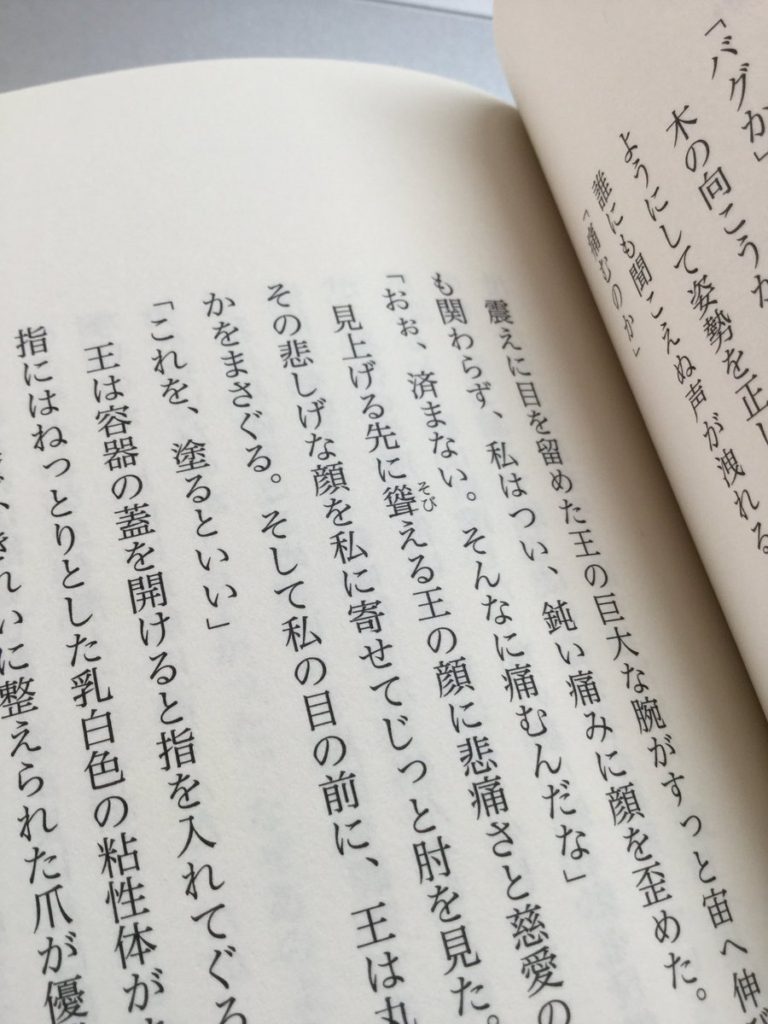 「バグか」
木の向こうか
ようにして姿勢を正し
誰にも聞こえぬ声が洩れる
「痛むのか」
震えに目を留めた王の巨大な腕がすっと宙へ伸び
も関わらず、私はつい、鈍い痛みに顔を歪めた。
「おぉ、済まない。そんなに痛むんだな」
見上げる先に聳える王の顔に悲痛さと慈愛の
そび
その悲しげな顔を私に寄せてじっと肘を見た。
かをまさぐる。そして私の目の前に、王は丸
「これを、塗るといい」
王は容器の蓋を開けると指を入れてぐる
指にはねっとりとした乳白色の粘性体が
きれいに整えられた爪が優